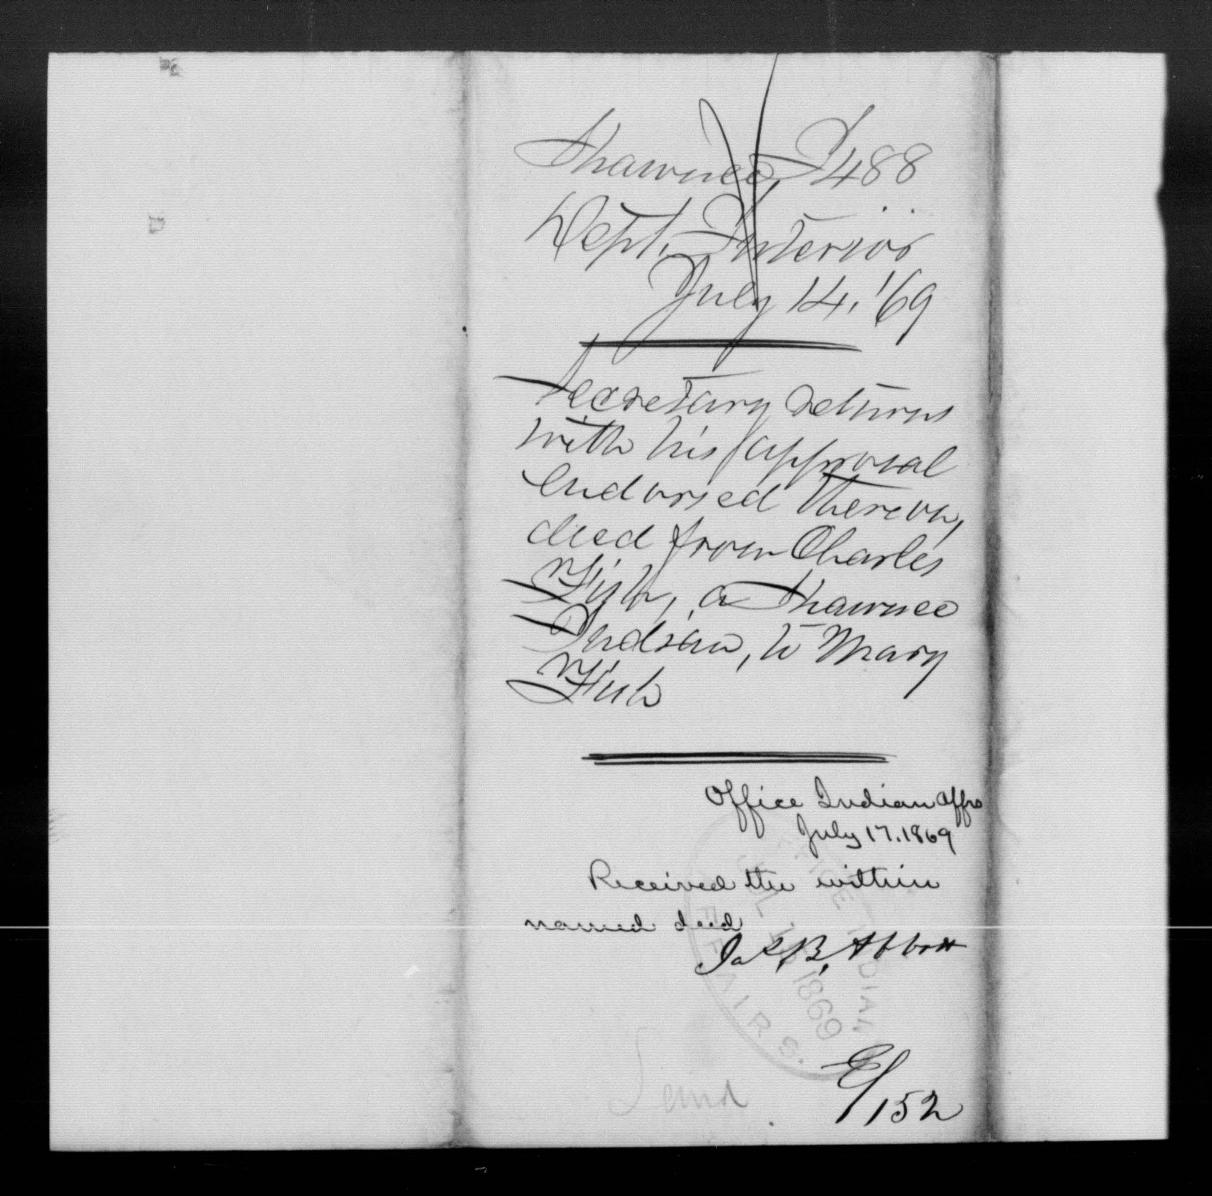 Shawnee, I 488
Dept. Interior
July 14, '69
Secretary returns
with his approval
endorsed thereon,
deed from Charles
Fish, a Shawnee
Indian, to Mary
Fish
Office Indian Affrs
July 17. 1869
Received the within
named deed
Jas. B. Abbott
OFFICE INDIAN
JUL 1869
AFFAIRS.
Land
E/152